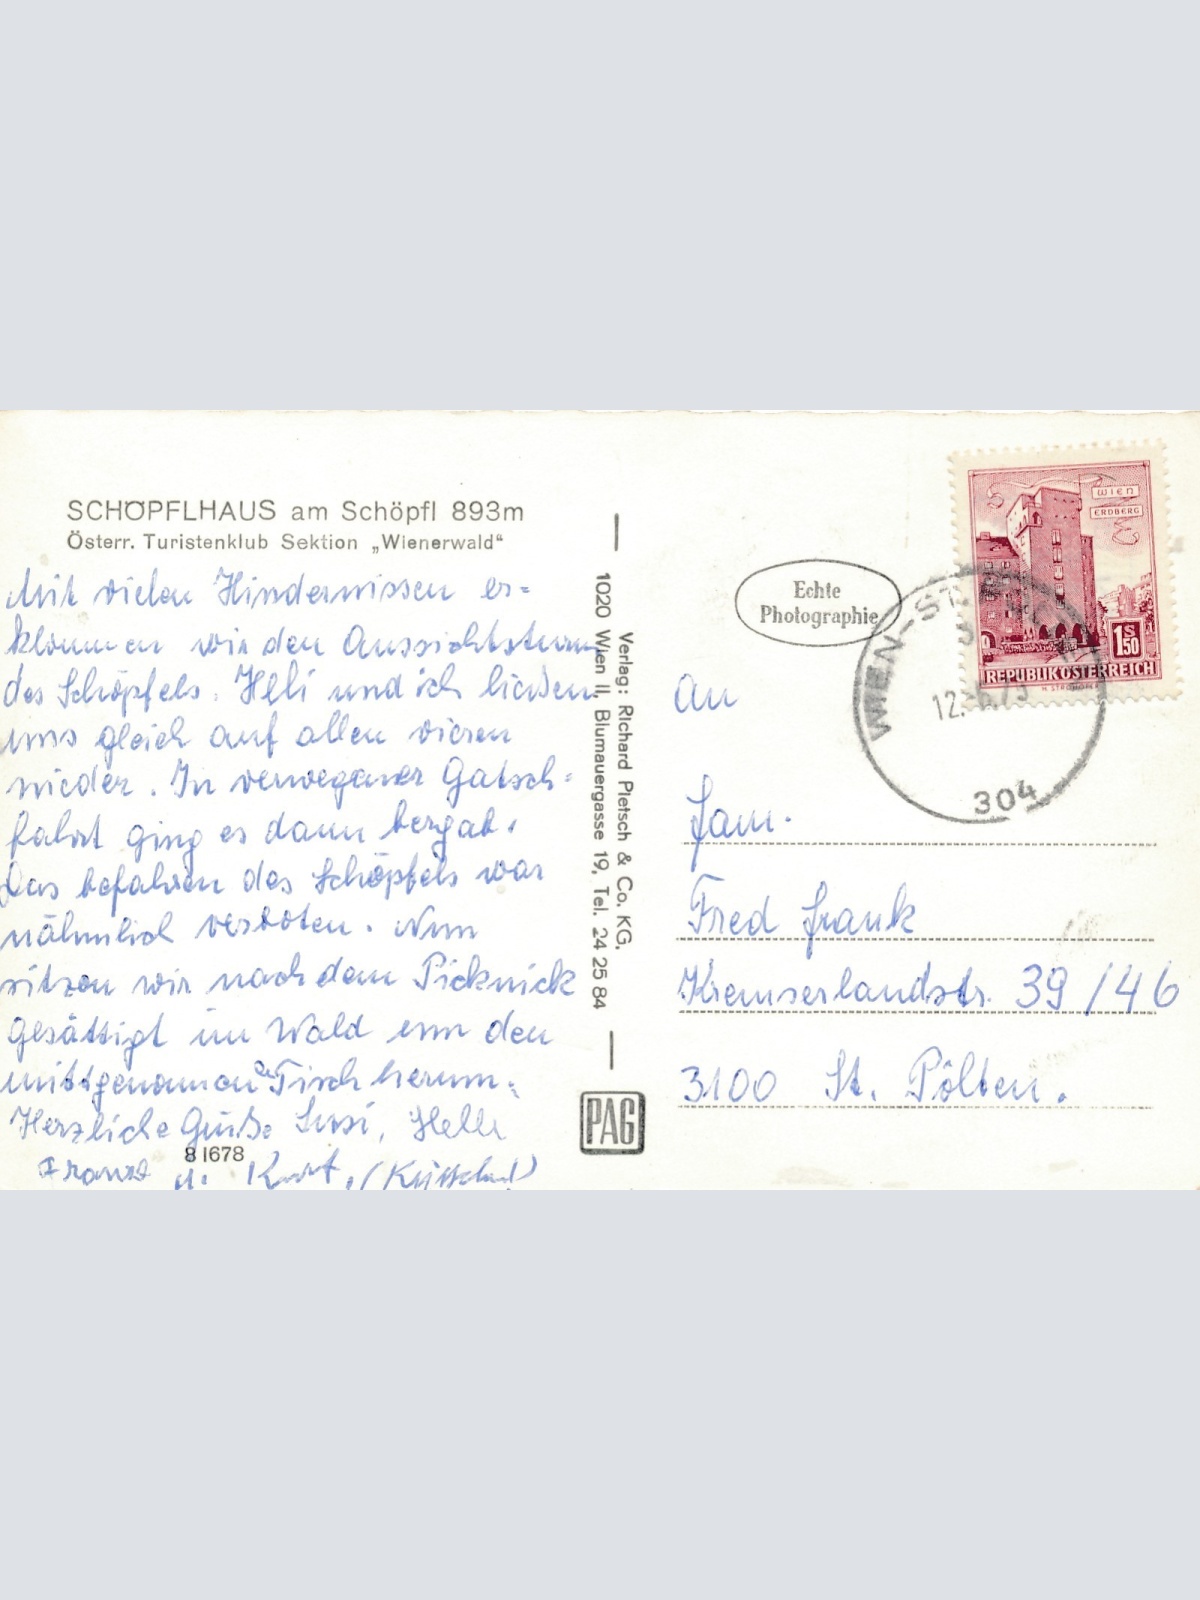 SCHÖPFLHAUS am Schöpfl 893m
Österr. Turistenklub Sektion „Wienerwald“
Mit vielen Hindernissen er=
klommen wir den Aussichtsturm
des Schöpfels. Heli und ich ließen
uns gleich auf allen vieren
nieder. In verwegener Gatsch=
fahrt ging es dann bergab.
Das befahren des Schöpfels war
nähmlich verboten. Nun
sitzen wir nach dem Picknick
gesättigt im Wald um den
mittgenommenen Tisch herum.
Herzliche Grüße Susi, Helli
Franz u. Kurt,
8 1678
Verlag: Richard Pietsch & Co. KG.
1020 Wien II, Blumauergasse 19, Tel. 24 25 84
PAG
Echte
Photographie
WIEN
ERDBERG
1S50
REPUBLIK ÖSTERREICH
WIEN-ST
12.
304
An
Fam.
Fred Frank
Kremserlandstr. 39/46
3100 St. Pölten.